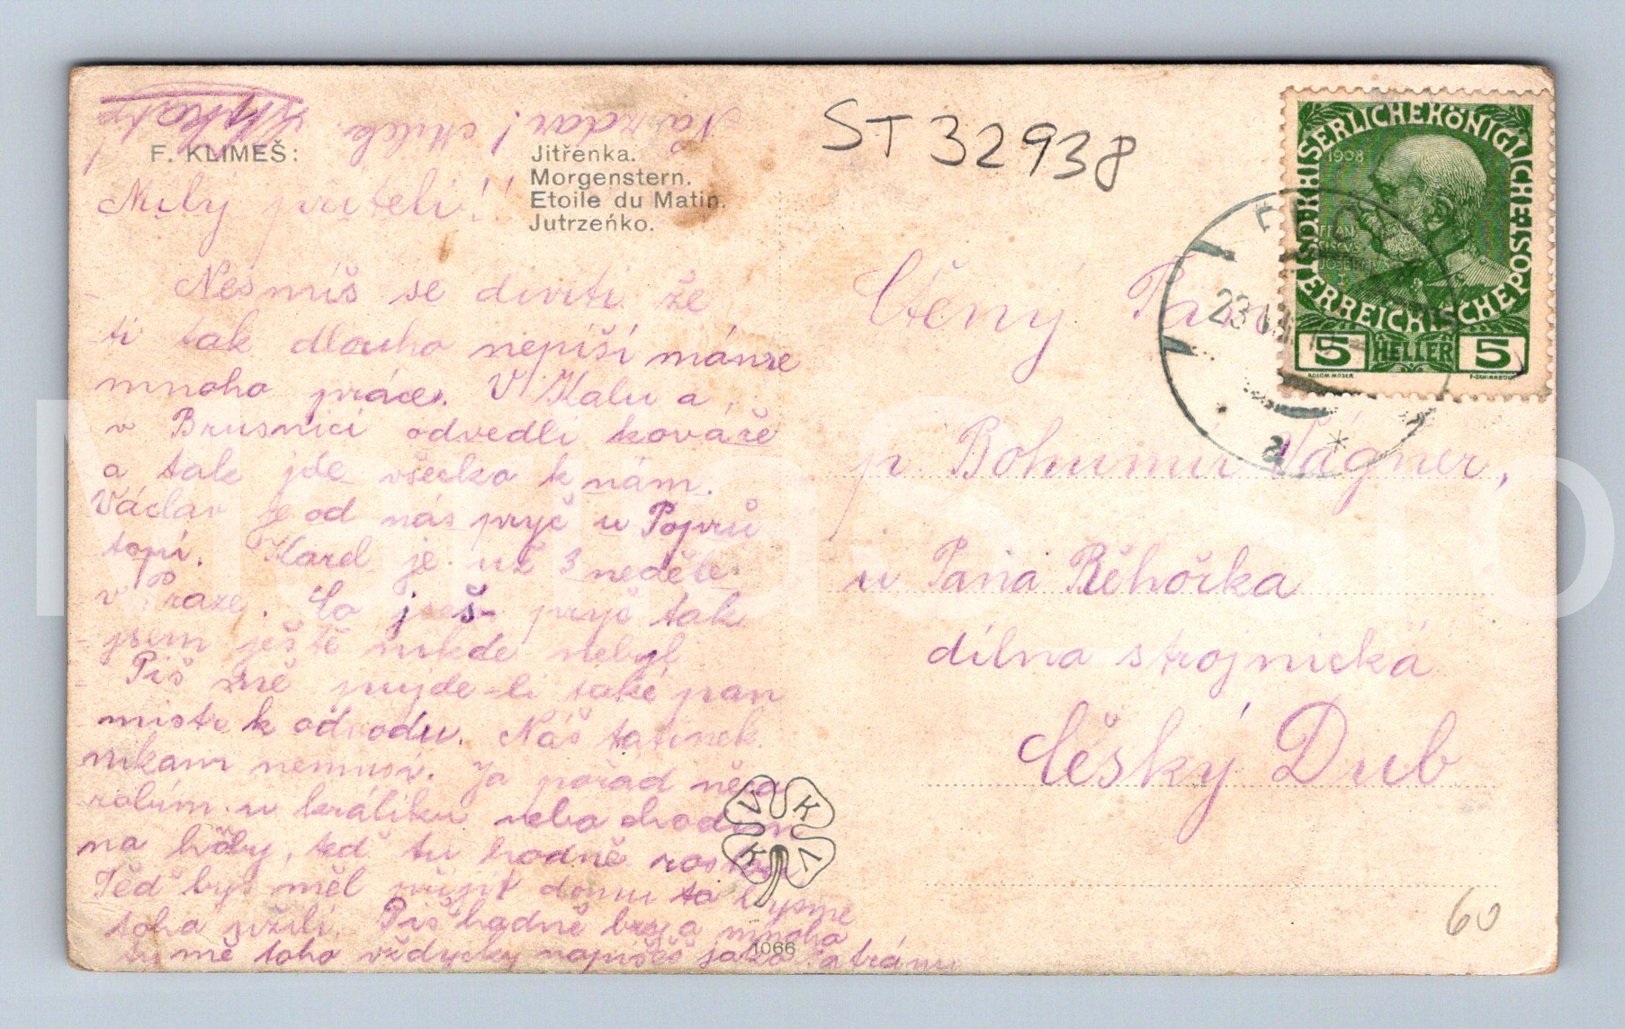 Nazdar!
F. KLIMEŠ:
Jitřenka.
Morgenstern.
Etoile du Matin.
Jutrzeńko.
ST 32938
KAISERLICHE KÖNIGLICHE ÖSTERREICHISCHE POST
1908
5 HELLER 5
23
Milý příteli!
Nesmíš se diviti že
ti tak dlouho nepíši máme
mnoho práce. V Kalu a
v Brusnici odvedli kováře
a tak jde všecko k nám.
Václav je od nás pryč u Poprů
topí. Karel je už 3 neděle
v Praze. Co pryč tak
jsem ještě nikde nebyl
Piš mě přijde-li také pan
mistr k odvodu. Náš tatínek
nikam nemusí. Já pořád něco
robím u králíku nebo chodím
na hřiby, teď tu hodně rostou
Teď bys měl přijít domu to bysme
toho užili. Piš hodně brzo a mnoho
mě toho vždycky napíšeš jako
Ctěný Pan
p Bohumir Vágner,
u Pana Řehořka
dílna strojnická
Český Dub
V K K L
1066
60
MariaStro